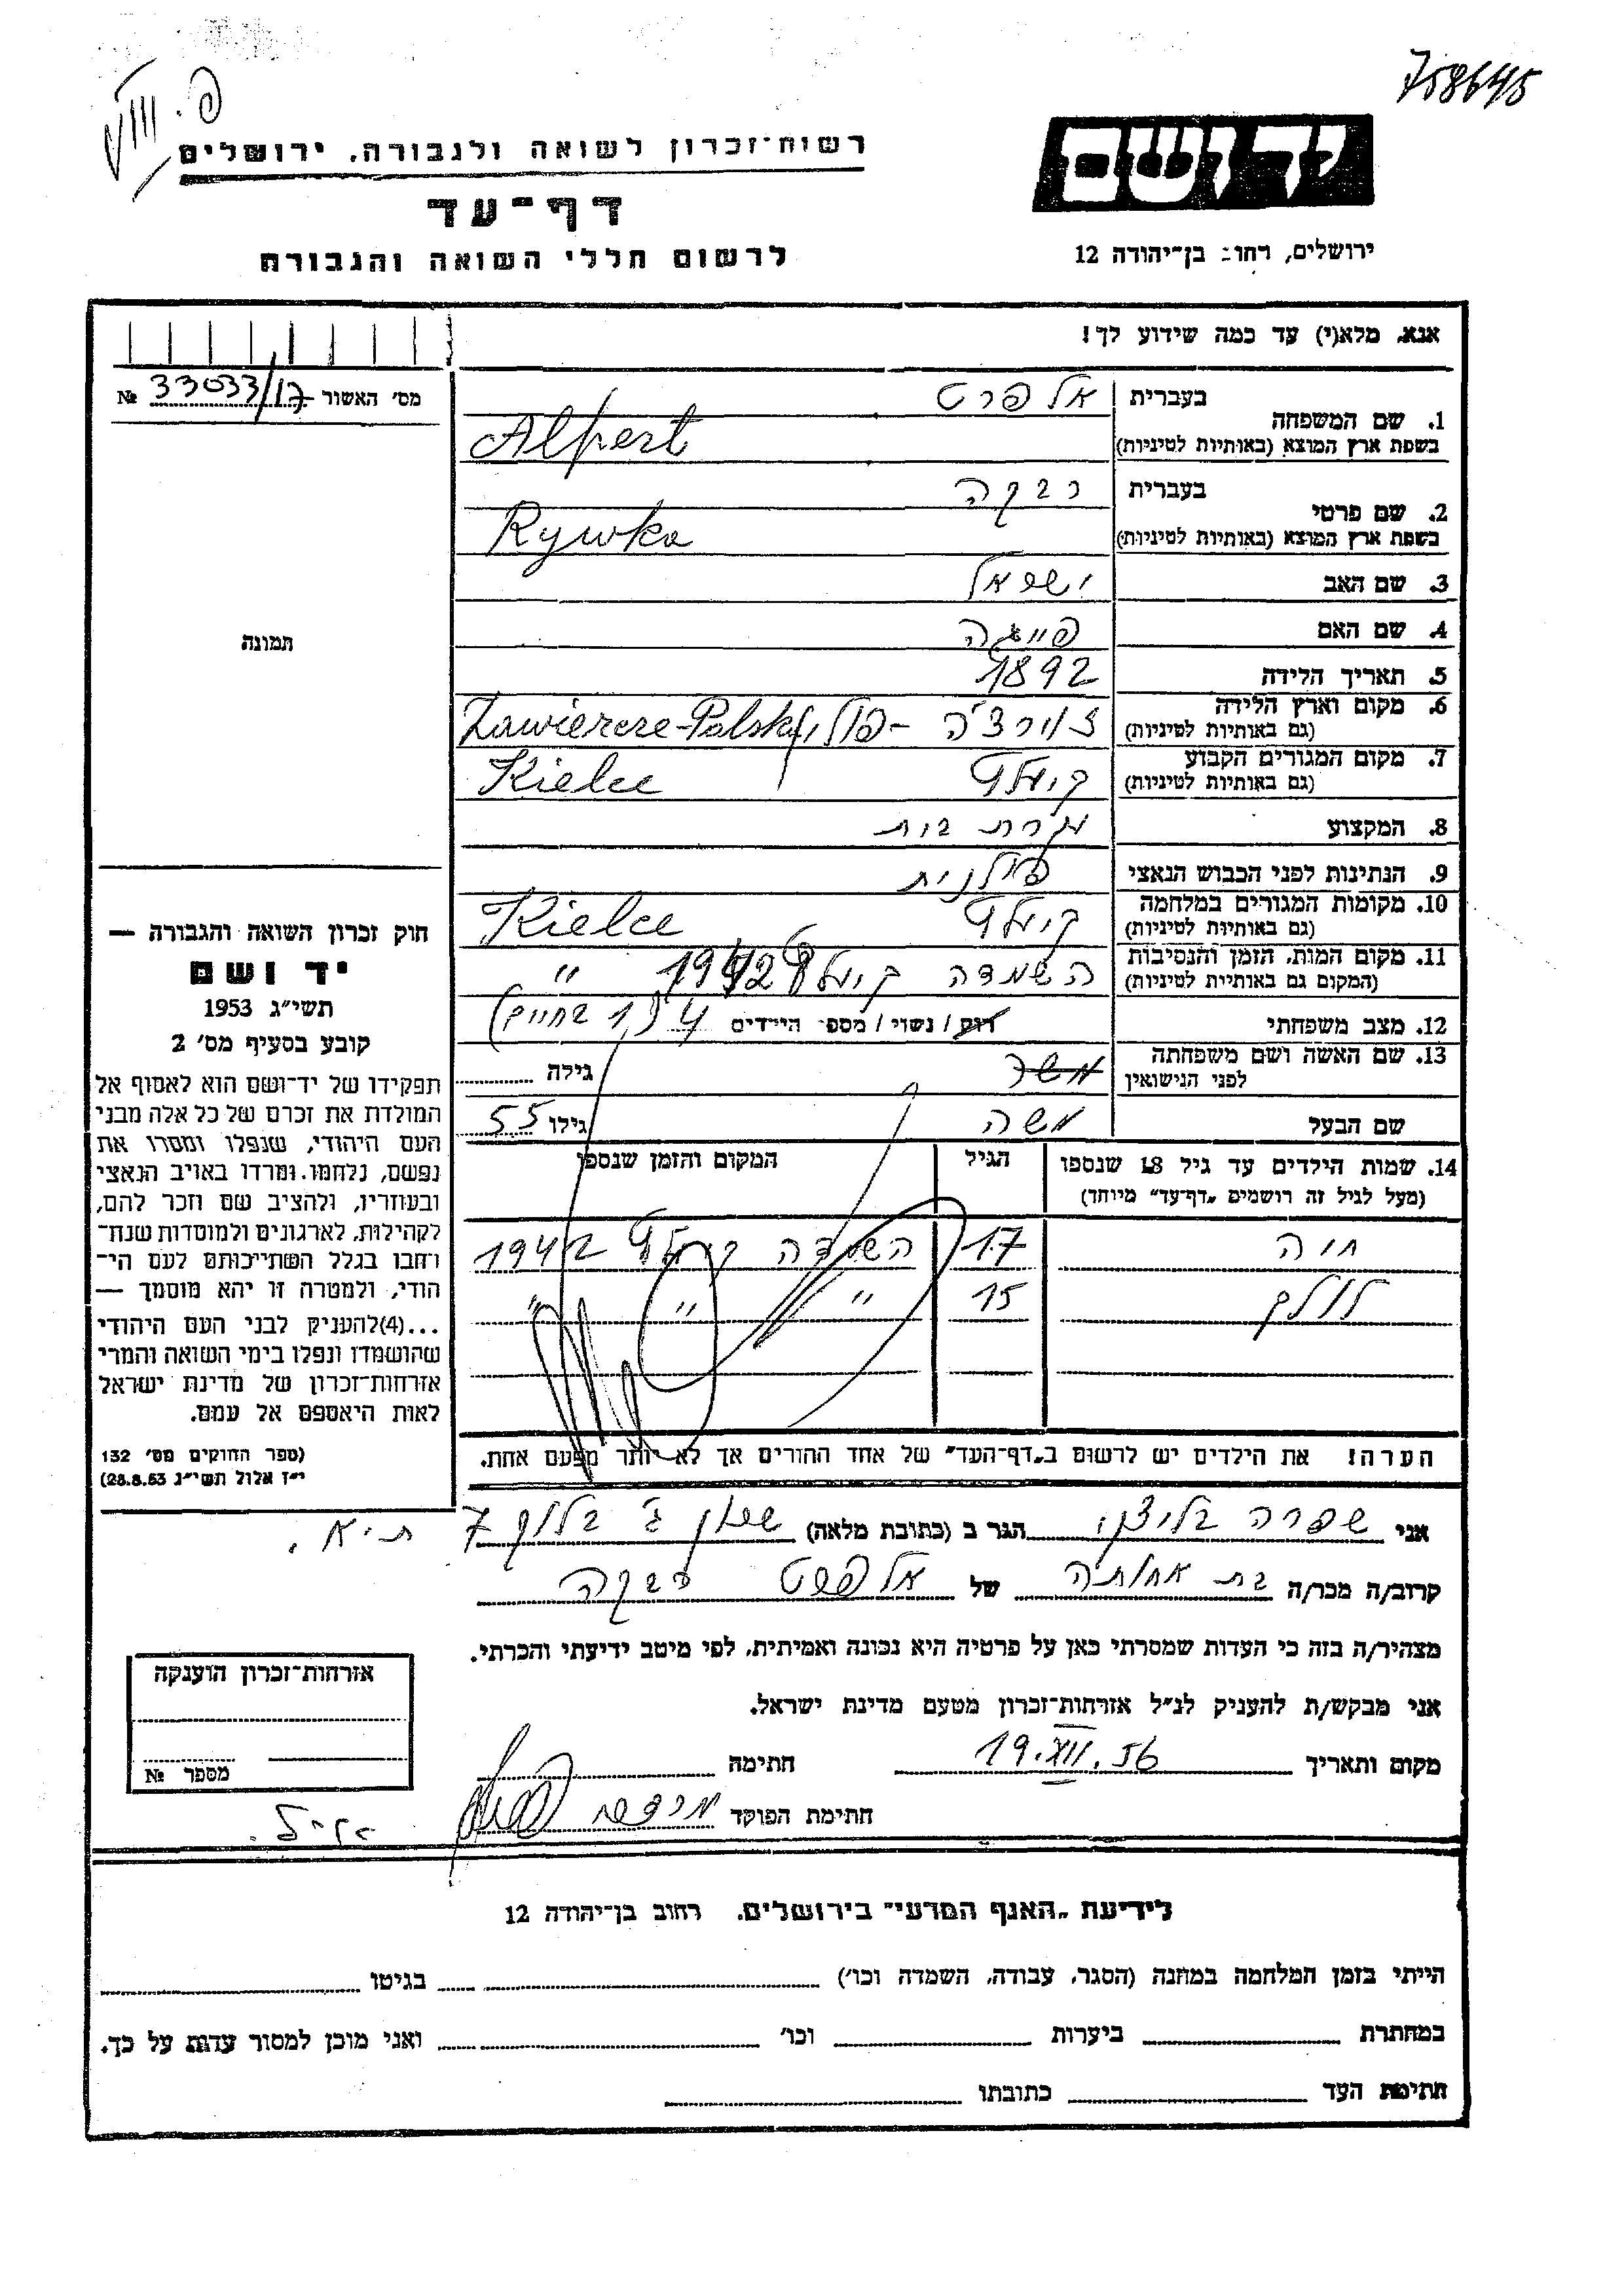 758645
פ. VIII
יד ושם
רשות־זכרון לשואה ולגבורה, ירושלים
דף־עד
לרשום חללי השואה והגבורה
ירושלים, רחוב בן־יהודה 12
אנא, מלא(י) עד כמה שידוע לך!
מס׳ האשור 33033/17 №
1. שם המשפחה בעברית אלפרט
בשפת ארץ המוצא (באותיות לטיניות) Alpert
2. שם פרטי בעברית רבקה
בשפת ארץ המוצא (באותיות לטיניות) Rywka
3. שם האב ישראל
4. שם האם פייגה
תמונה
5. תאריך הלידה 1892
6. מקום וארץ הלידה (גם באותיות לטיניות) זוירצ׳ה - פולין Zawierce-Polska
7. מקום המגורים הקבוע (גם באותיות לטיניות) קילץ Kielce
8. המקצוע עקרת בית
9. הנתינות לפני הכבוש הנאצי פולנית
10. מקומות המגורים במלחמה (גם באותיות לטיניות) קילץ Kielce
11. מקום המות, הזמן והנסיבות (המקום גם באותיות לטיניות) השמדה קילץ 1942 "
12. מצב משפחתי רווק / נשוי / מספר הילדים 4 (1 בחיים)
13. שם האשה ושם משפחתה לפני הנישואין גילה
שם הבעל משה גילו 55
14. שמות הילדים עד גיל 18 שנספו הגיל המקום והזמן שנספו
(מעל לגיל זה רושמים „דף־עד" מיוחד)
חיה 17 השמדה קילץ 1942
לולק 15 " " "
הערה! את הילדים יש לרשום ב„דף־העד" של אחד ההורים אך לא יותר מפעם אחת.
חוק זכרון השואה והגבורה —
יד ושם
תשי״ג 1953
קובע בסעיף מס׳ 2
תפקידו של יד־ושם הוא לאסוף אל
המולדת את זכרם של כל אלה מבני
העם היהודי, שנפלו ומסרו את
נפשם, נלחמו ומרדו באויב הנאצי
ובעוזריו, ולהציב שם וזכר להם,
לקהילות, לארגונים ולמוסדות שנח־
רחבו בגלל השתייכותם לעם הי־
הודי, ולמטרה זו יהא מוסמך —
...(4) להעניק לבני העם היהודי
שהושמדו ונפלו בימי השואה והמרי
אזרחות־זכרון של מדינת ישראל
לאות היאספם אל עמם.
(ספר החוקים מס׳ 132
י״ז אלול תשי״ג 28.8.53)
אני שפרה הגר ב (כתובת מלאה) ג׳ בלוק 7 ת״א.
קרוב/ה מכר/ה בת אחותה של אלפרט רבקה
מצהיר/ה בזה כי העדות שמסרתי כאן על פרטיה היא נכונה ואמיתית, לפי מיטב ידיעתי והכרתי.
אני מבקש/ת להעניק לנ״ל אזרחות־זכרון מטעם מדינת ישראל.
מקום ותאריך 19.XII.56 חתימה
חתימת הפוקד
אזרחות־זכרון הוענקה
מספר №
לידיעת „האגף המדעי" בירושלים, רחוב בן־יהודה 12
הייתי בזמן המלחמה במחנה (הסגר, עבודה, השמדה וכו׳) בגיטו
במחתרת ביערות וכו׳ ואני מוכן למסור עדות על כך.
חתימת העד כתובתו